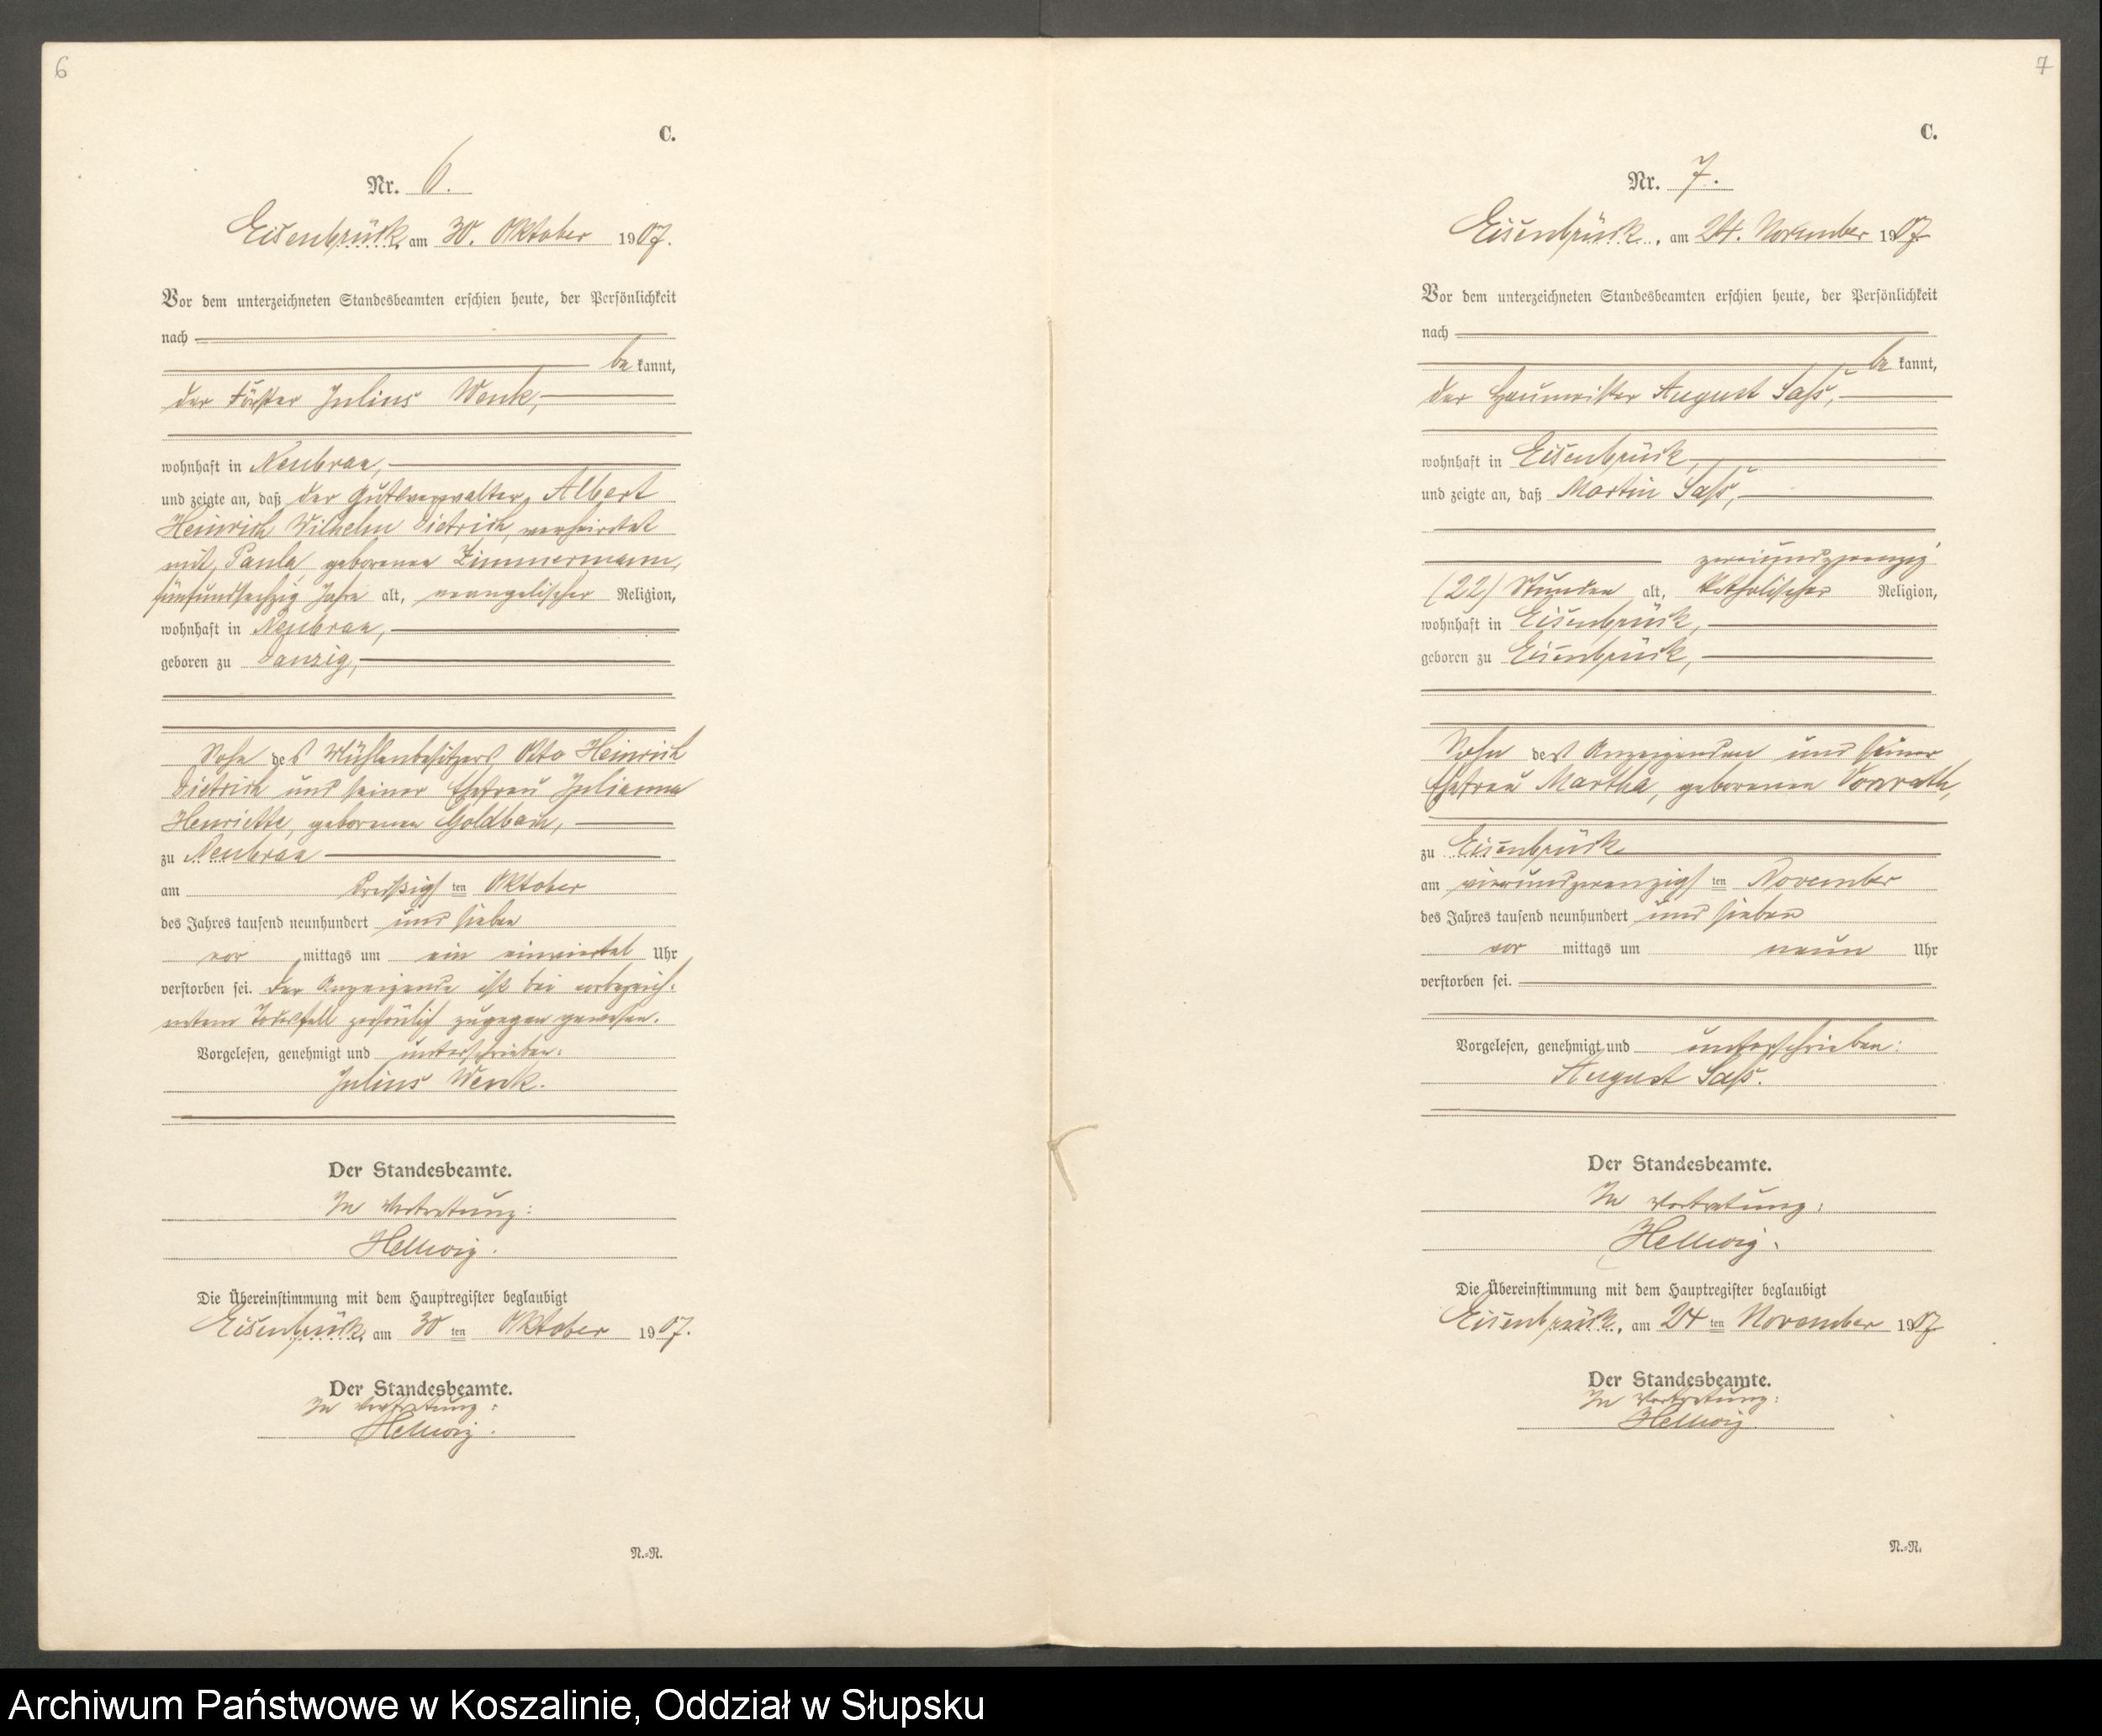 6
C.
Nr. 6.
Eisenbrück, am 30. Oktober 1907.
Vor dem unterzeichneten Standesbeamten erschien heute, der Persönlichkeit
nach
be kannt,
der Förster Julius Wenk,
wohnhaft in Neubraa,
und zeigte an, daß der Gutsverwalter, Albert
Heinrich Wilhelm Dietrich, verheirathet
mit, Paula geborenen Zimmermann,
fünfundsechzig Jahre alt, evangelischer Religion,
wohnhaft in Neubraa,
geboren zu Danzig,
Sohn des Mühlenbesitzers Otto Heinrich
Dietrich und seiner Ehefrau Julianna
Henriette, geborenen Goldbach,
zu Neubraa
am dreißigsten Oktober
des Jahres tausend neunhundert und sieben
vor mittags um ein einviertel Uhr
verstorben sei. Der Anzeigende ist bei vorbezeich-
netem Todesfall persönlich zugegen gewesen.
Vorgelesen, genehmigt und unterschrieben:
Julius Wenk.
Der Standesbeamte.
In Vertretung:
Hellwig.
Die Übereinstimmung mit dem Hauptregister beglaubigt
Eisenbrück, am 30 ten Oktober 1907.
Der Standesbeamte.
In Vertretung:
Hellwig.
N.-N.
7
C.
Nr. 7.
Eisenbrück, am 24. November 1907
Vor dem unterzeichneten Standesbeamten erschien heute, der Persönlichkeit
nach
be kannt,
der Haumeister August Saß,
wohnhaft in Eisenbrück,
und zeigte an, daß Martin Saß,
zweiundzwanzig
(22) Stunden alt, katholischer Religion,
wohnhaft in Eisenbrück,
geboren zu Eisenbrück,
Sohn des Anzeigenden und seiner
Ehefrau Martha, geborenen Vonrath,
zu Eisenbrück
am vierundzwanzigsten November
des Jahres tausend neunhundert und sieben
vor mittags um neun Uhr
verstorben sei.
Vorgelesen, genehmigt und unterschrieben:
August Saß.
Der Standesbeamte.
In Vertretung:
Hellwig.
Die Übereinstimmung mit dem Hauptregister beglaubigt
Eisenbrück, am 24 ten November 1907
Der Standesbeamte.
In Vertretung:
Hellwig.
N.-N.
Archiwum Państwowe w Koszalinie, Oddział w Słupsku